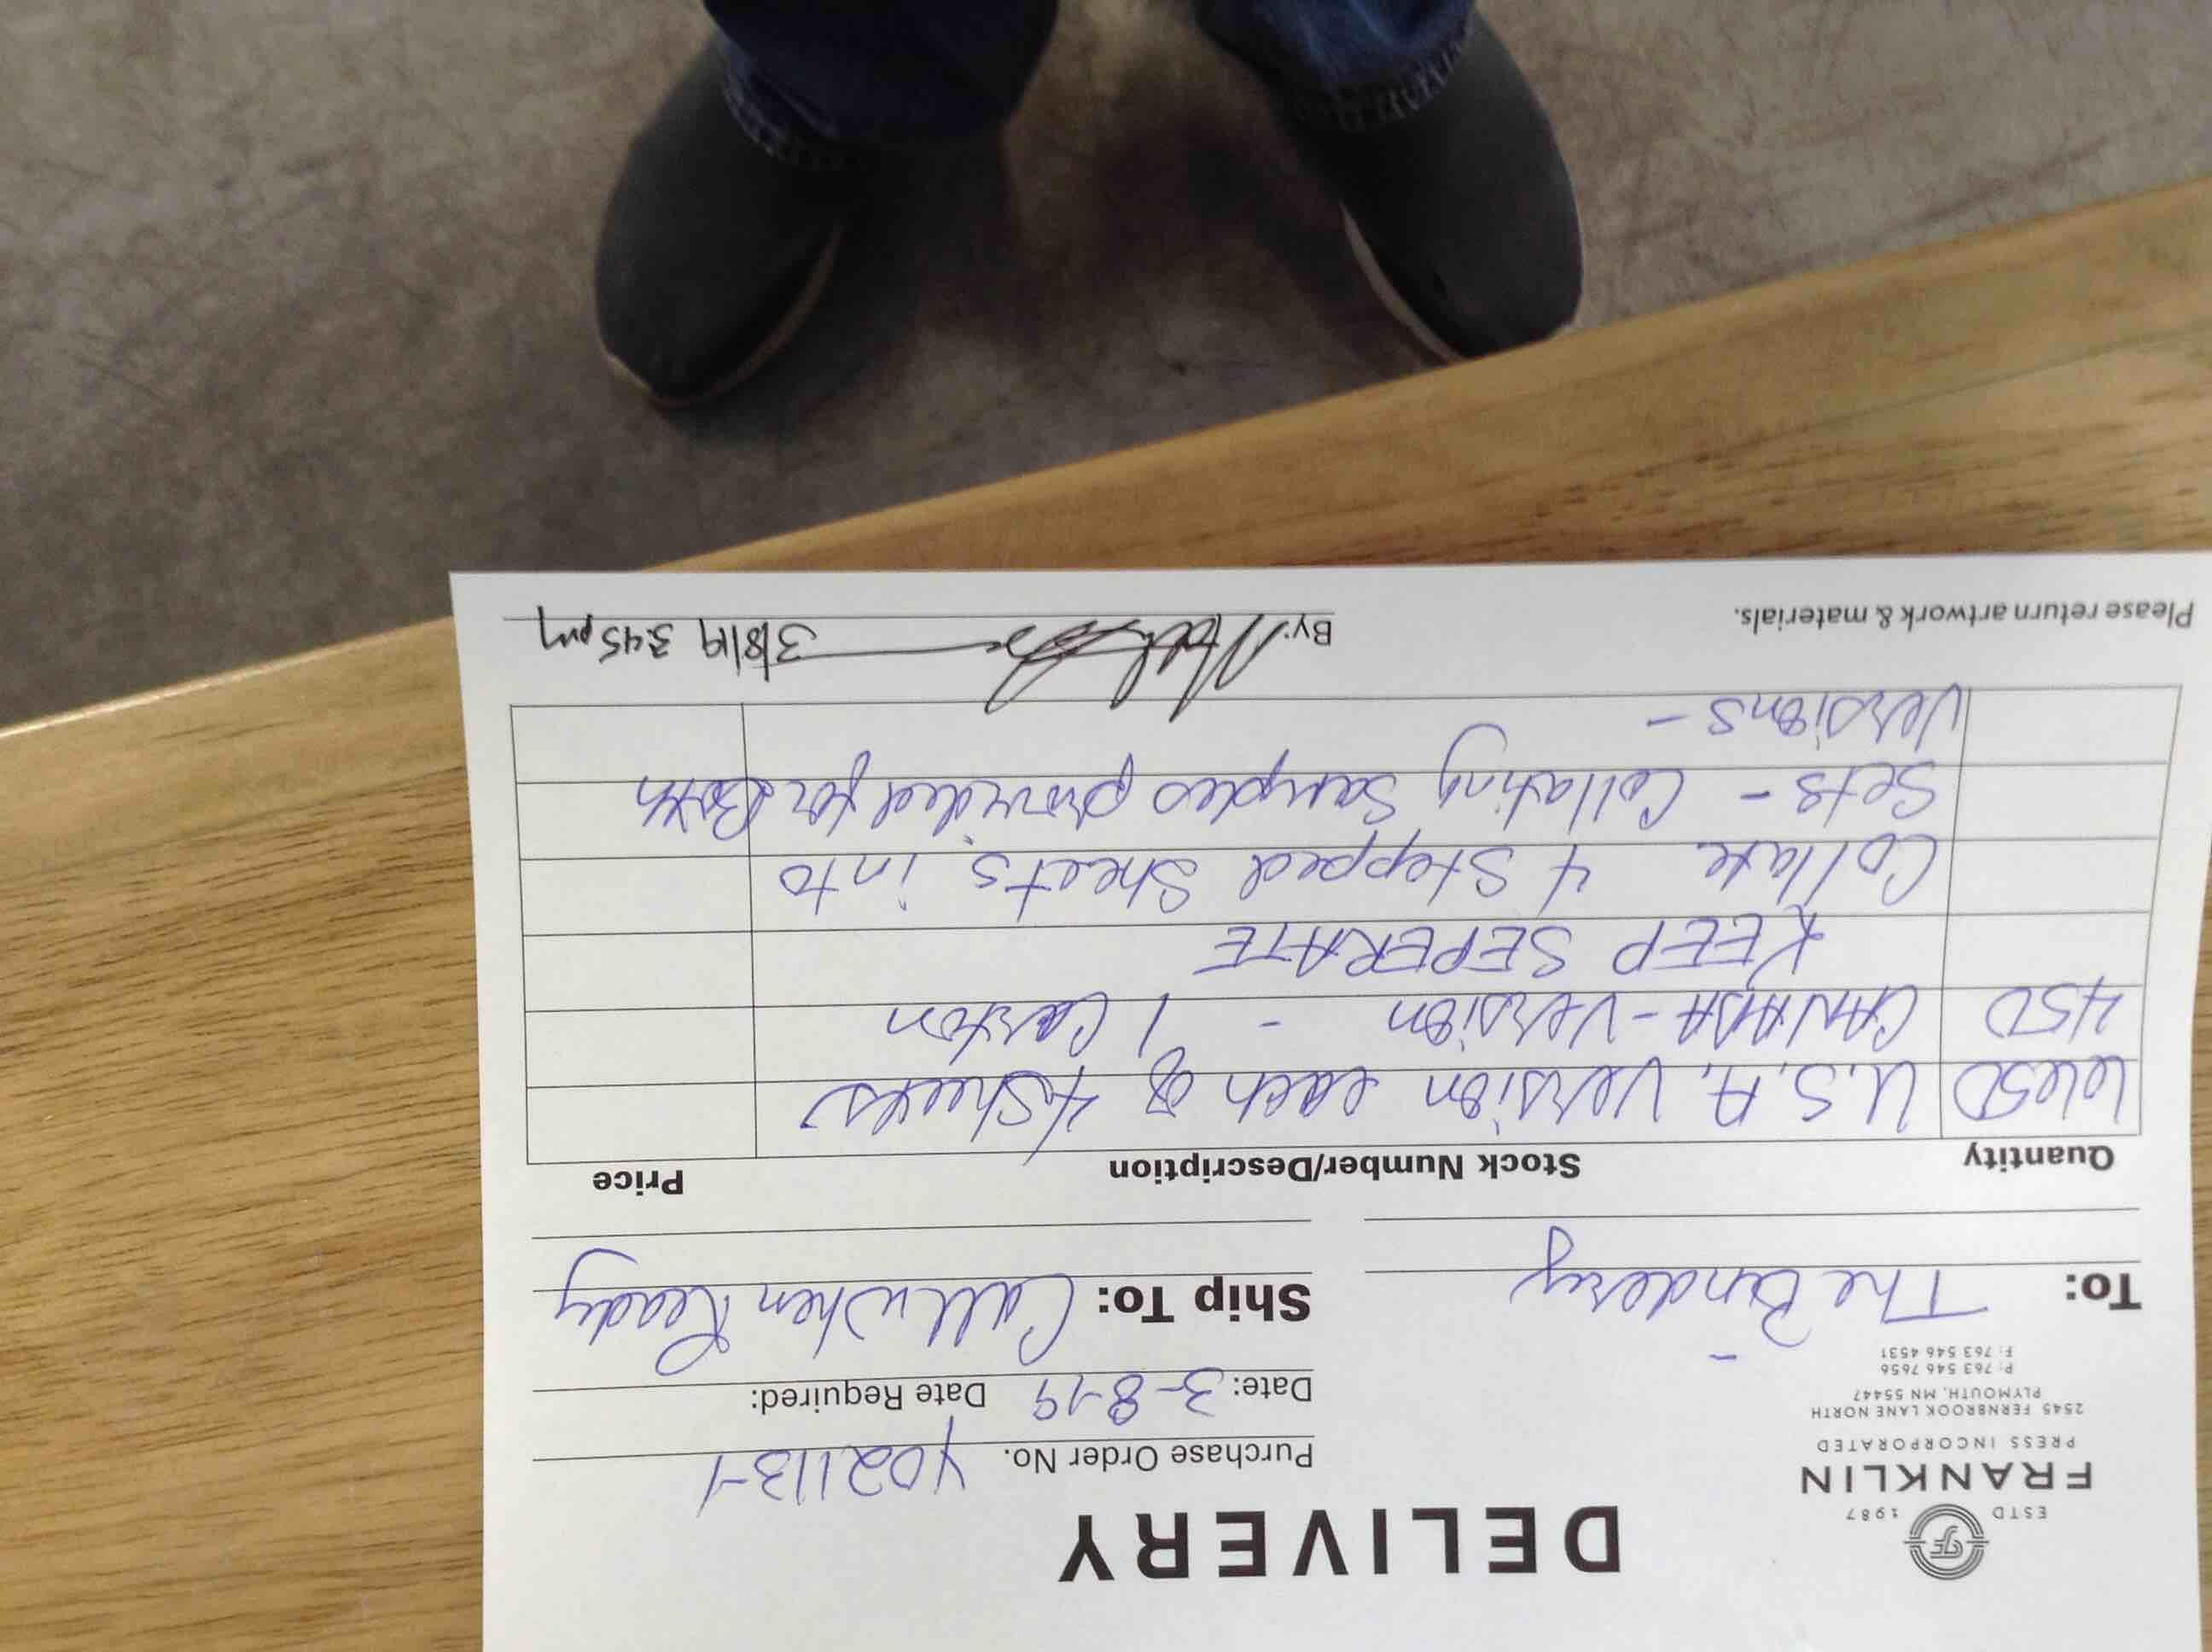 ESTD 1987
FRANKLIN
PRESS INCORPORATED
2545 FERNBROOK LANE NORTH
PLYMOUTH, MN 55447
P: 763 546 7656
F: 763 546 4531
DELIVERY
Purchase Order No. 402113-1
Date: 3-8-19 Date Required:
To: The Bindery
Ship To: Call when Ready
Quantity Stock Number/Description Price
U.S.A. Version each of 4 Sheets
450 CANADA-Version - 1 Carton
KEEP SEPERATE
Collate 4 Stepped Sheets into
Sets - Collating Samples provided for Both
Versions -
Please return artwork & materials.
By: 3/8/19 3:45pm